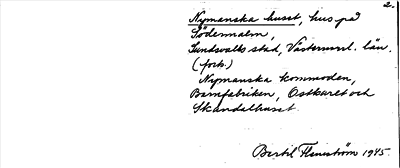 2.
Nymanska huset, hus på
Södermalm,
Sundsvalls stad, Västernorrl. län.
(fork.)
Nymanska kommoden,
Barnfabriken, Ostkaret och
Skandalhuset
Bertil Flemström 1945.